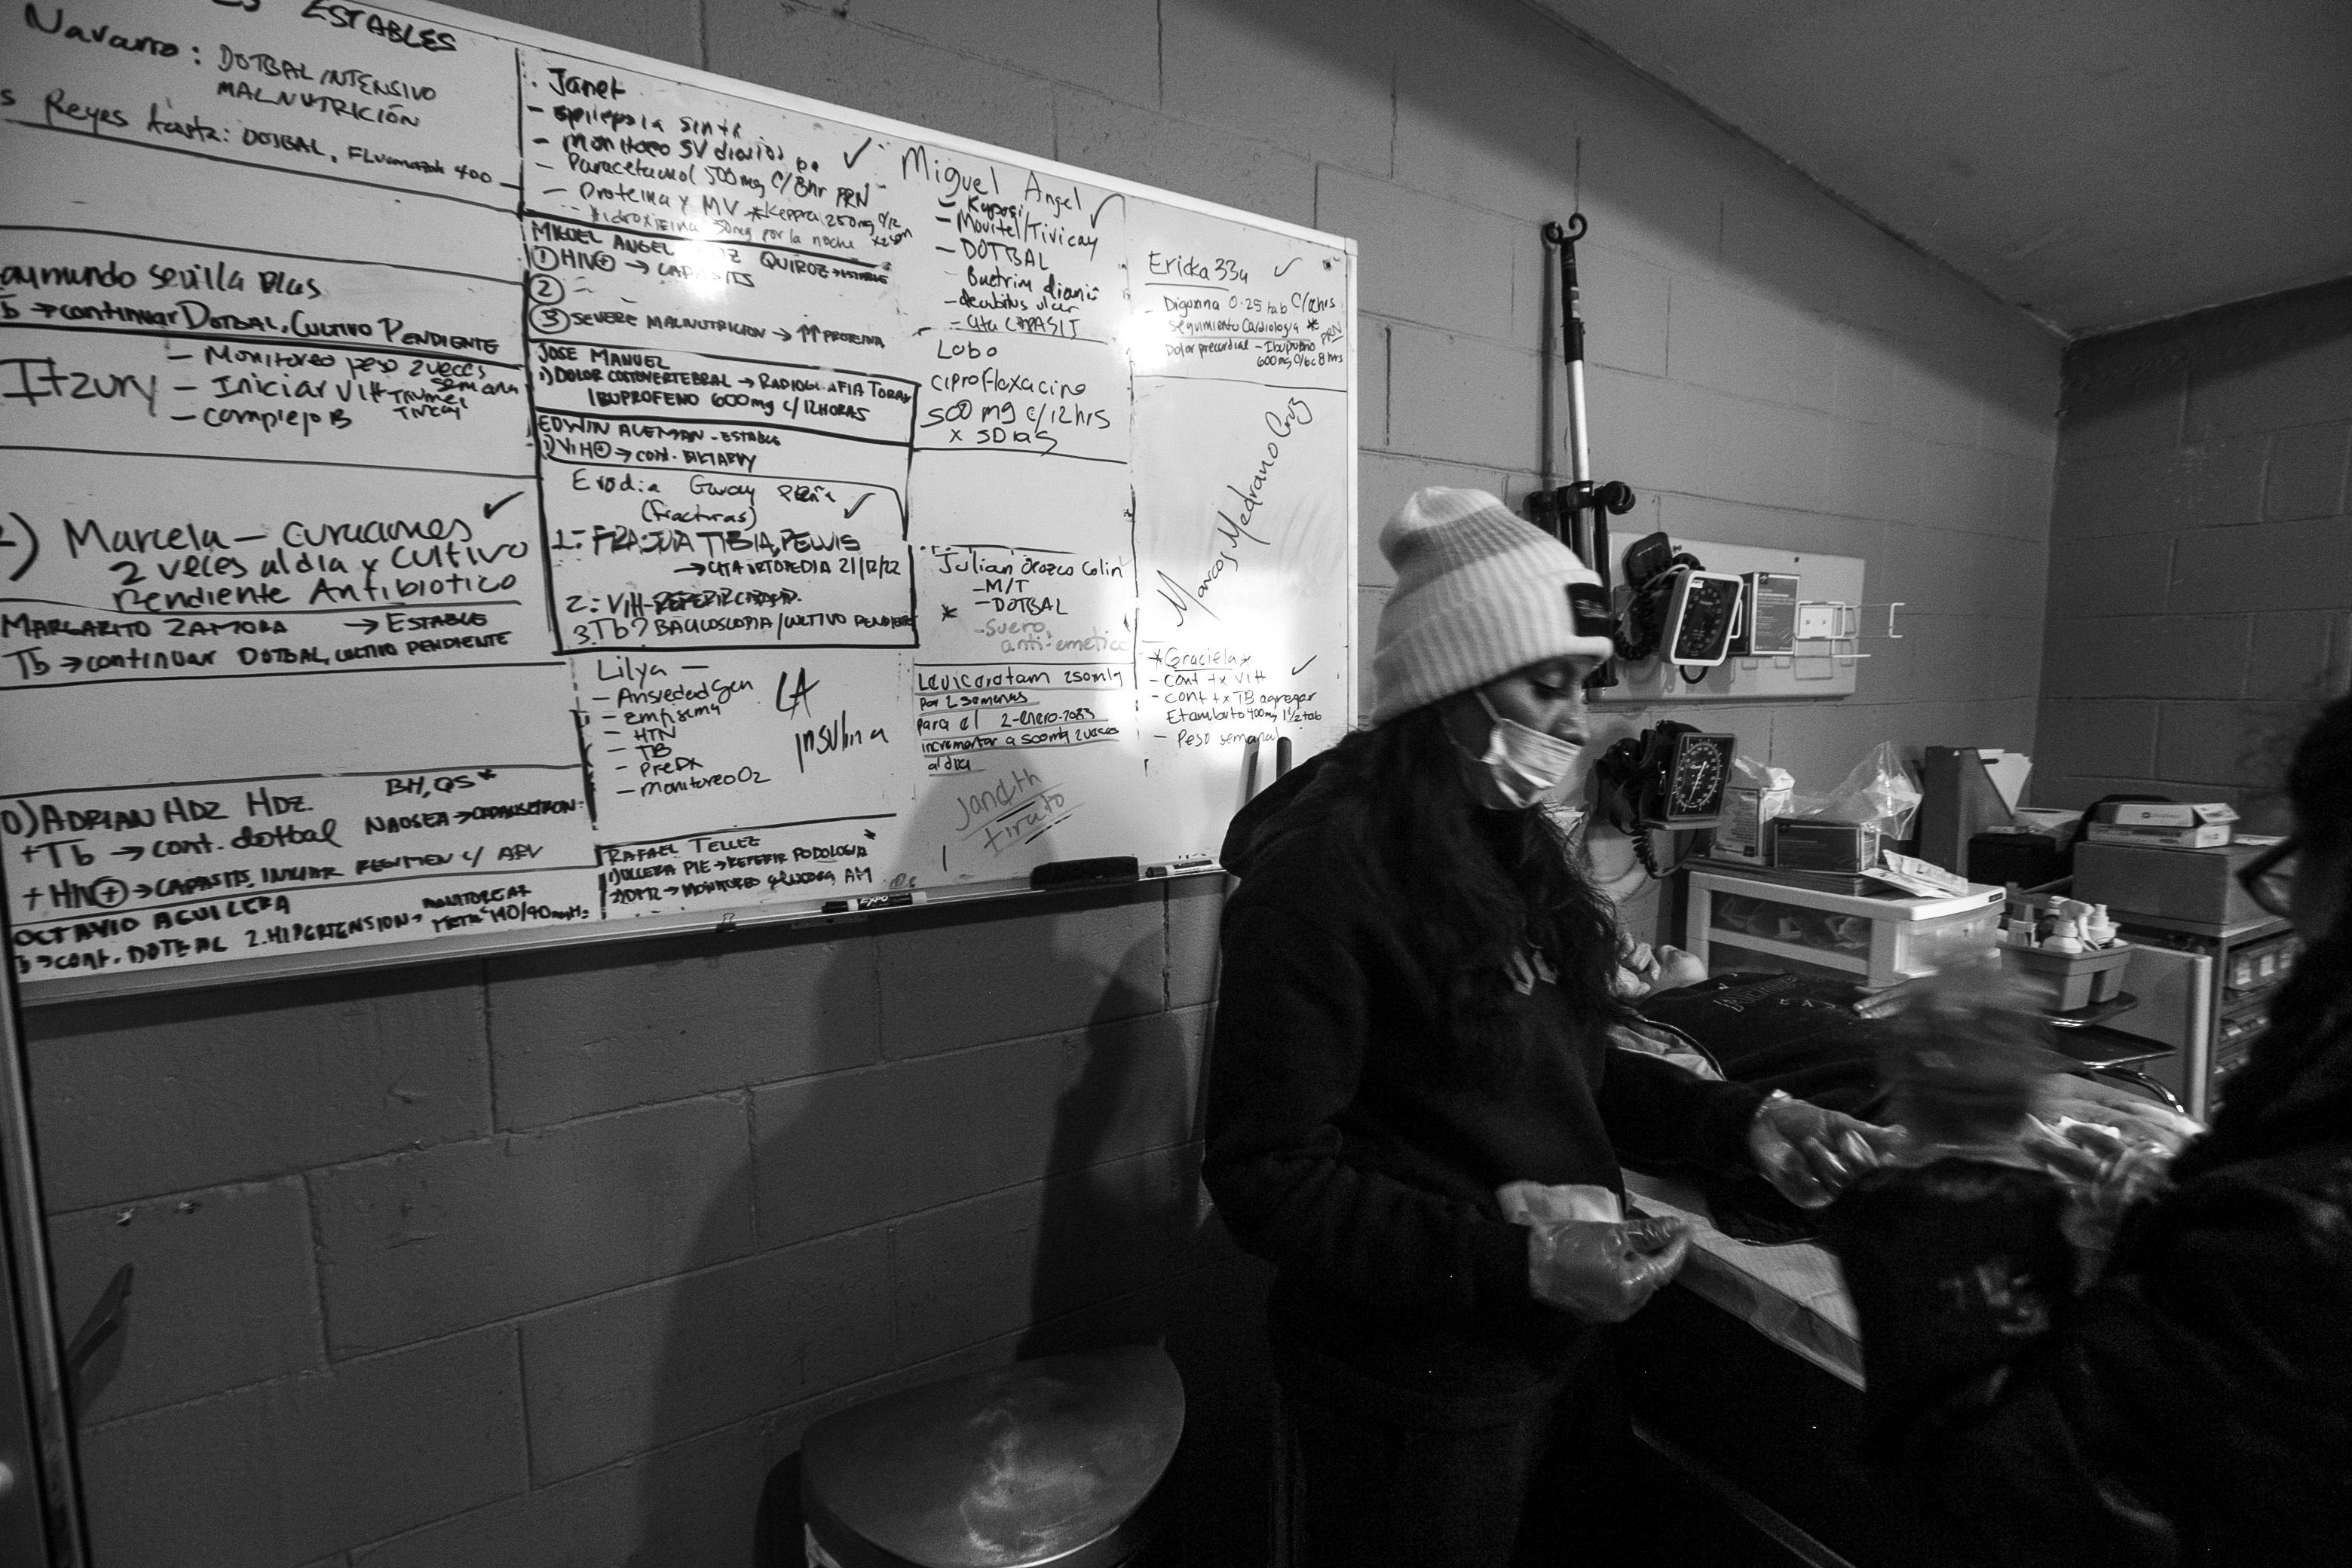 ESTABLES
Navarro: DOTBAL INTENSIVO
MALNUTRICIÓN
Reyes Acosta: DOTBAL, 400
aymundo Sevilla Blas
Tb → continuar DOTBAL, CULTIVO PENDIENTE
Itzury
- Monitoreo peso 2 veces
semana
- Iniciar VIH
- Complejo B
Marcela - Curaciones
2 veces al día y cultivo
Pendiente Antibiotico
MARGARITO ZAMORA → ESTABLE
Tb → continuar DOTBAL, CULTIVO PENDIENTE
0) ADRIAN HDZ HDZ. BH, QS*
+Tb → cont. dotbal NAUSEA →
+ HIV⊕ → CAPASITS, INICIAR REGIMEN c/ ARV
OCTAVIO AGUILERA
cont. DOTBAL 2. HIPERTENSION → MONITOREAR
META 140/90
Janet
- epilepsia
- monitoreo SV diarios
- Paracetamol 500mg c/8hr PRN
- Proteina y MV *Keppra 250mg c/12
por la noche
MIGUEL ANGEL QUIROZ → ESTABLE
① HIV⊕ →
②
③ SEVERE MALNUTRICION → ↑↑ PROTEINA
JOSE MANUEL
1) DOLOR COSTOVERTEBRAL → RADIOGRAFIA TORAX
IBUPROFENO 600mg c/12HORAS
EDWIN ALEMAN - ESTABLE
1) VIH⊕ → cont. BIKTARVY
Erodia
(fracturas)
TIBIA, PELVIS
→ CITA ORTOPEDIA 21/12/22
2.- VIH-REFERIR
3. Tb? BACILOSCOPIA/CULTIVO PENDIENTE
Lilya -
- Ansiedad Gen
- Emfisema
- HTN
- TB
- PreDx
- Monitoreo O2
LA
insulina
RAFAEL TELLEZ
1) ULCERA PIE → REFERIR PODOLOGIA
→ MONITOREO glucosa AM
Miguel Angel
- Kaposi
- Movitel/Tivicay
- DOTBAL
- Bactrim diario
- decubitus ulcer
Lobo
Ciprofloxacino
500 mg c/12hrs
x 5Dias
Julian Orozco Colin
- M/T
* - DOTBAL
- Suero
anti-emetico
250mg
por 2 semanas
para el 2-enero-2023
incrementar a 500mg 2 veces
al dia
Janeth
Ericka 33a
- Digoxina 0.25 tab c/
seguimiento Cardiologia * PRN
Dolor precordial - Ibuprofeno
600mg
Marcos Medrano Cruz
*Graciela*
- Cont tx VIH
- Cont tx TB agregar
Etambuto 400mg 1 1/2 tab
- Peso semanal
EXPO